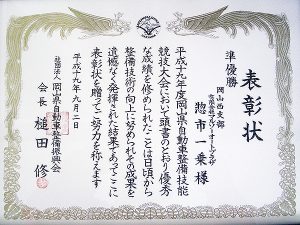 表彰状
準優勝
岡山西支部
惣市一乗様
平成十九年度岡山県自動車整備技能
競技大会において頭書のとおり優秀
な成績を修められたことは日頃から
整備技術の向上に努められその成果を
遺憾なく発揮された結果であってここに
表彰状を贈ってご努力を称えます
平成十九年九月二日
社団法人 岡山県自動車整備振興会
会長 槌田 修